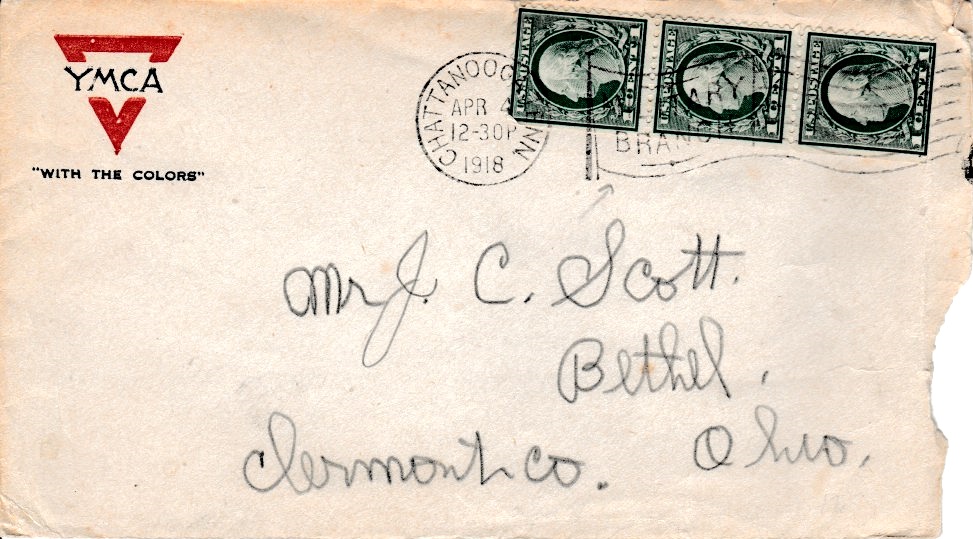 YMCA
"WITH THE COLORS"
CHATTANOOG
TENN
APR 4
12-30P
1918
U.S. POSTAGE
1 CENT 1
U.S. POSTAGE
1 CENT 1
U.S. POSTAGE
1 CENT 1
Mr J. C. Scott.
Bethel,
Clermont co. Ohio.